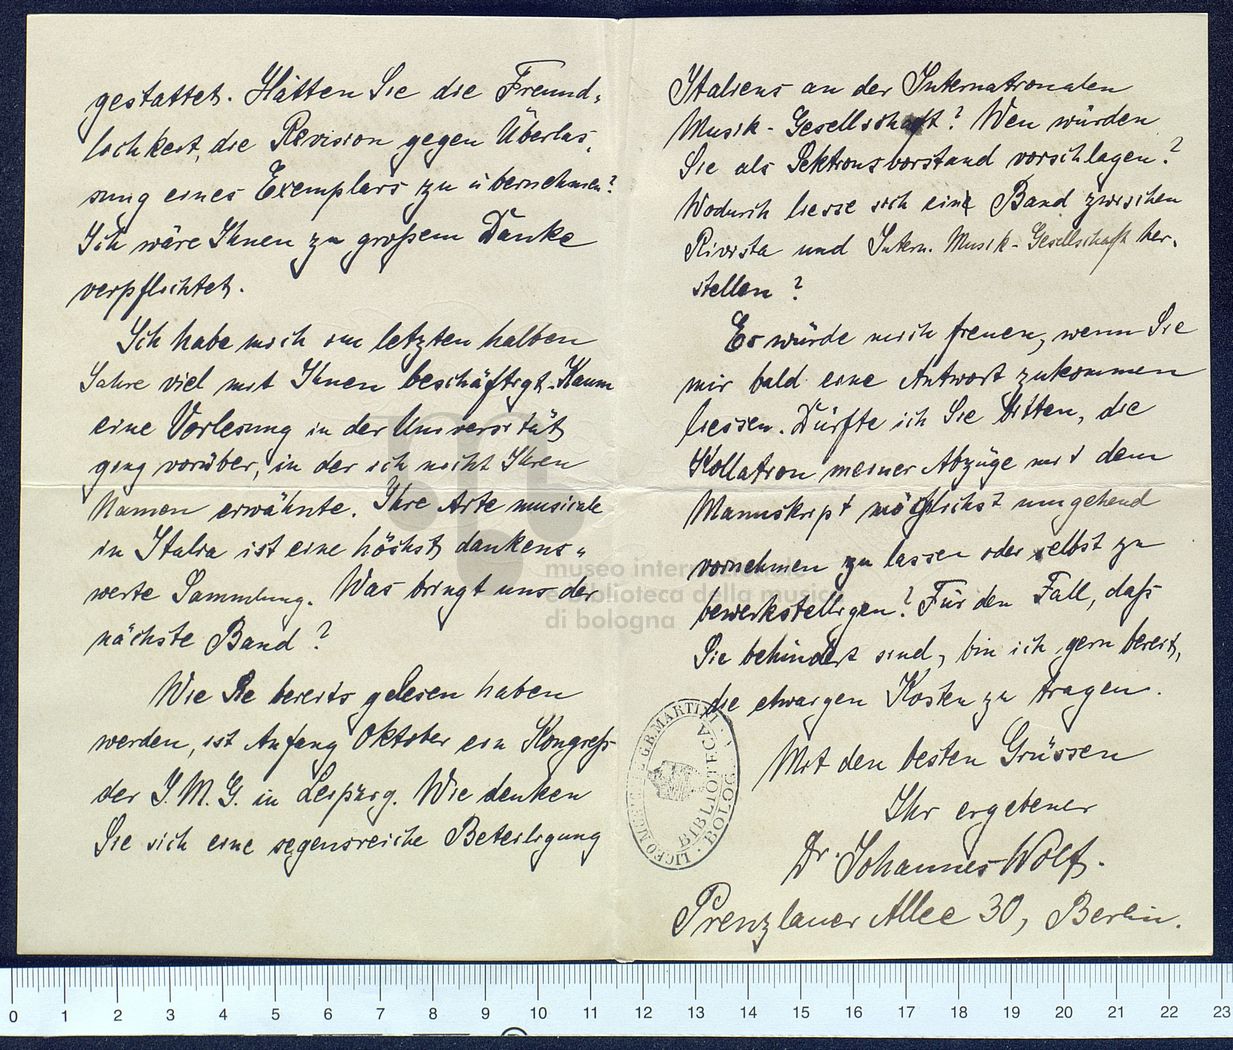 gestattet. Hätten Sie die Freund-
lichkeit, die Revision gegen Überlas-
sung eines Exemplars zu übernehmen?
Ich wäre Ihnen zu großem Danke
verpflichtet.
Ich habe mich im letzten halben
Jahre viel mit Ihnen beschäftigt. Kaum
eine Vorlesung in der Universität
ging vorüber, in der ich nicht Ihren
Namen erwähnte. Ihre Arte musicale
in Italia ist eine höchst dankens-
werte Sammlung. Was bringt uns der
nächste Band?
Wie Sie bereits gelesen haben
werden, ist Anfang Oktober ein Kongreß
der I. M. G. in Leipzig. Wie denken
Sie sich eine segensreiche Beteiligung
Italiens an der Internationalen
Musik-Gesellschaft? Wen würden
Sie als Sektionsvorstand vorschlagen?
Wodurch liesse sich ein Band zwischen
Rivista und Intern. Musik-Gesellschaft her-
stellen?
Es würde mich freuen, wenn Sie
mir bald eine Antwort zukommen
liessen. Dürfte ich Sie bitten, die
Kollation meiner Abzüge mit dem
Manuskript möglichst umgehend
vornehmen zu lassen oder selbst zu
bewerkstelligen? Für den Fall, daß
Sie behindert sind, bin ich gern bereit,
die etwaigen Kosten zu tragen.
Mit den besten Grüssen
Ihr ergebener
Dr. Johannes Wolf.
Prenzlauer Allee 30, Berlin.
museo internazionale
e biblioteca della musica
di bologna
G.B. MARTINI
BIBLIOTECA
0 1 2 3 4 5 6 7 8 9 10 11 12 13 14 15 16 17 18 19 20 21 22 23